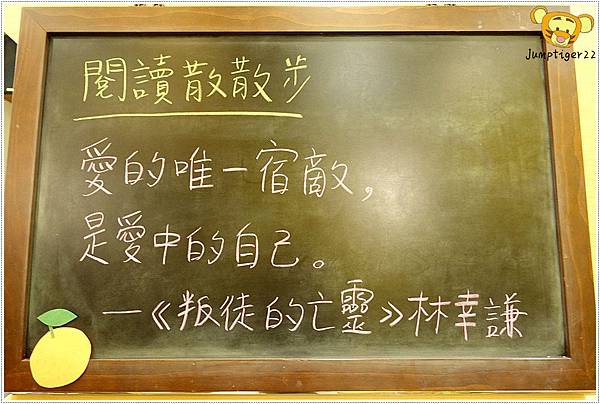 Jumptiger22
閱讀散散步
愛的唯一宿敵，
是愛中的自己。
—《叛徒的亡靈》林幸謙